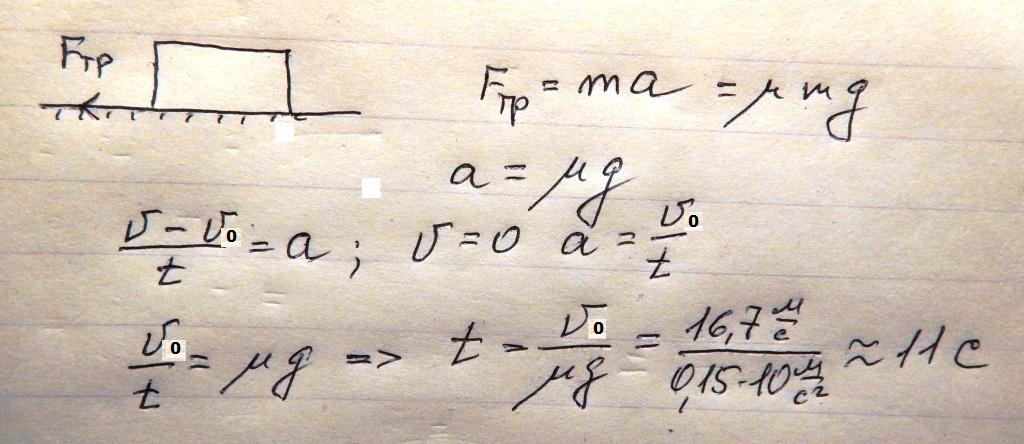 Fтр
Fтр = ma = μmg
a = μg
(v - v₀)/t = a ; v = 0 a = v₀/t
v₀/t = μg => t = v₀/μg = (16,7 м/с)/(0,15·10 м/с²) ≈ 11 с